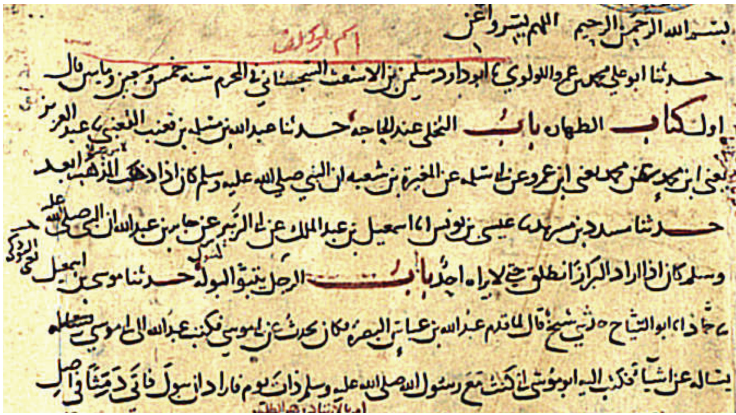 بسم الله الرحمن الرحيم اللهم يسر واعن
حدثنا ابو علي محمد بن عمرو اللولوي ابو داود سليمن بن الاشعث السجستاني في المحرم سنه خمس وسبعين وماىىن قال
اول كتاب الطهاره باب التخلي عند الحاجه حدثنا عبدالله بن مسلمه بن قعنب القعنبي عبد العزيز
يعني ابن محمد عن محمد يعني ابن عمرو عن ابي سلمه عن المغيرة بن شعبه ان النبي صلي الله عليه وسلم كان اذا ذهب المذهب ابعد
حدثنا مسدد بن مسرهد عيسي بن يونس اسمعيل بن عبد الملك عن ابي الزبير عن جابر بن عبدالله ان النبي صلي الله عليه
وسلم كان اذا اراد البراز انطلق حتي لا يراه احد باب الرجل يتبوا لبوله حدثنا موسي بن اسمعيل
حماد ابو التياح حدثني شيخ قال لما قدم عبدالله بن عباس البصرة فكان يحدث عن ابي موسي فكتب عبدالله الي ابي موسي
يساله عن اشيا فكتب اليه ابو موسي اني كنت مع رسول الله صلي الله عليه وسلم ذات يوم فاراد ان يبول فاتي دمثا في اصل